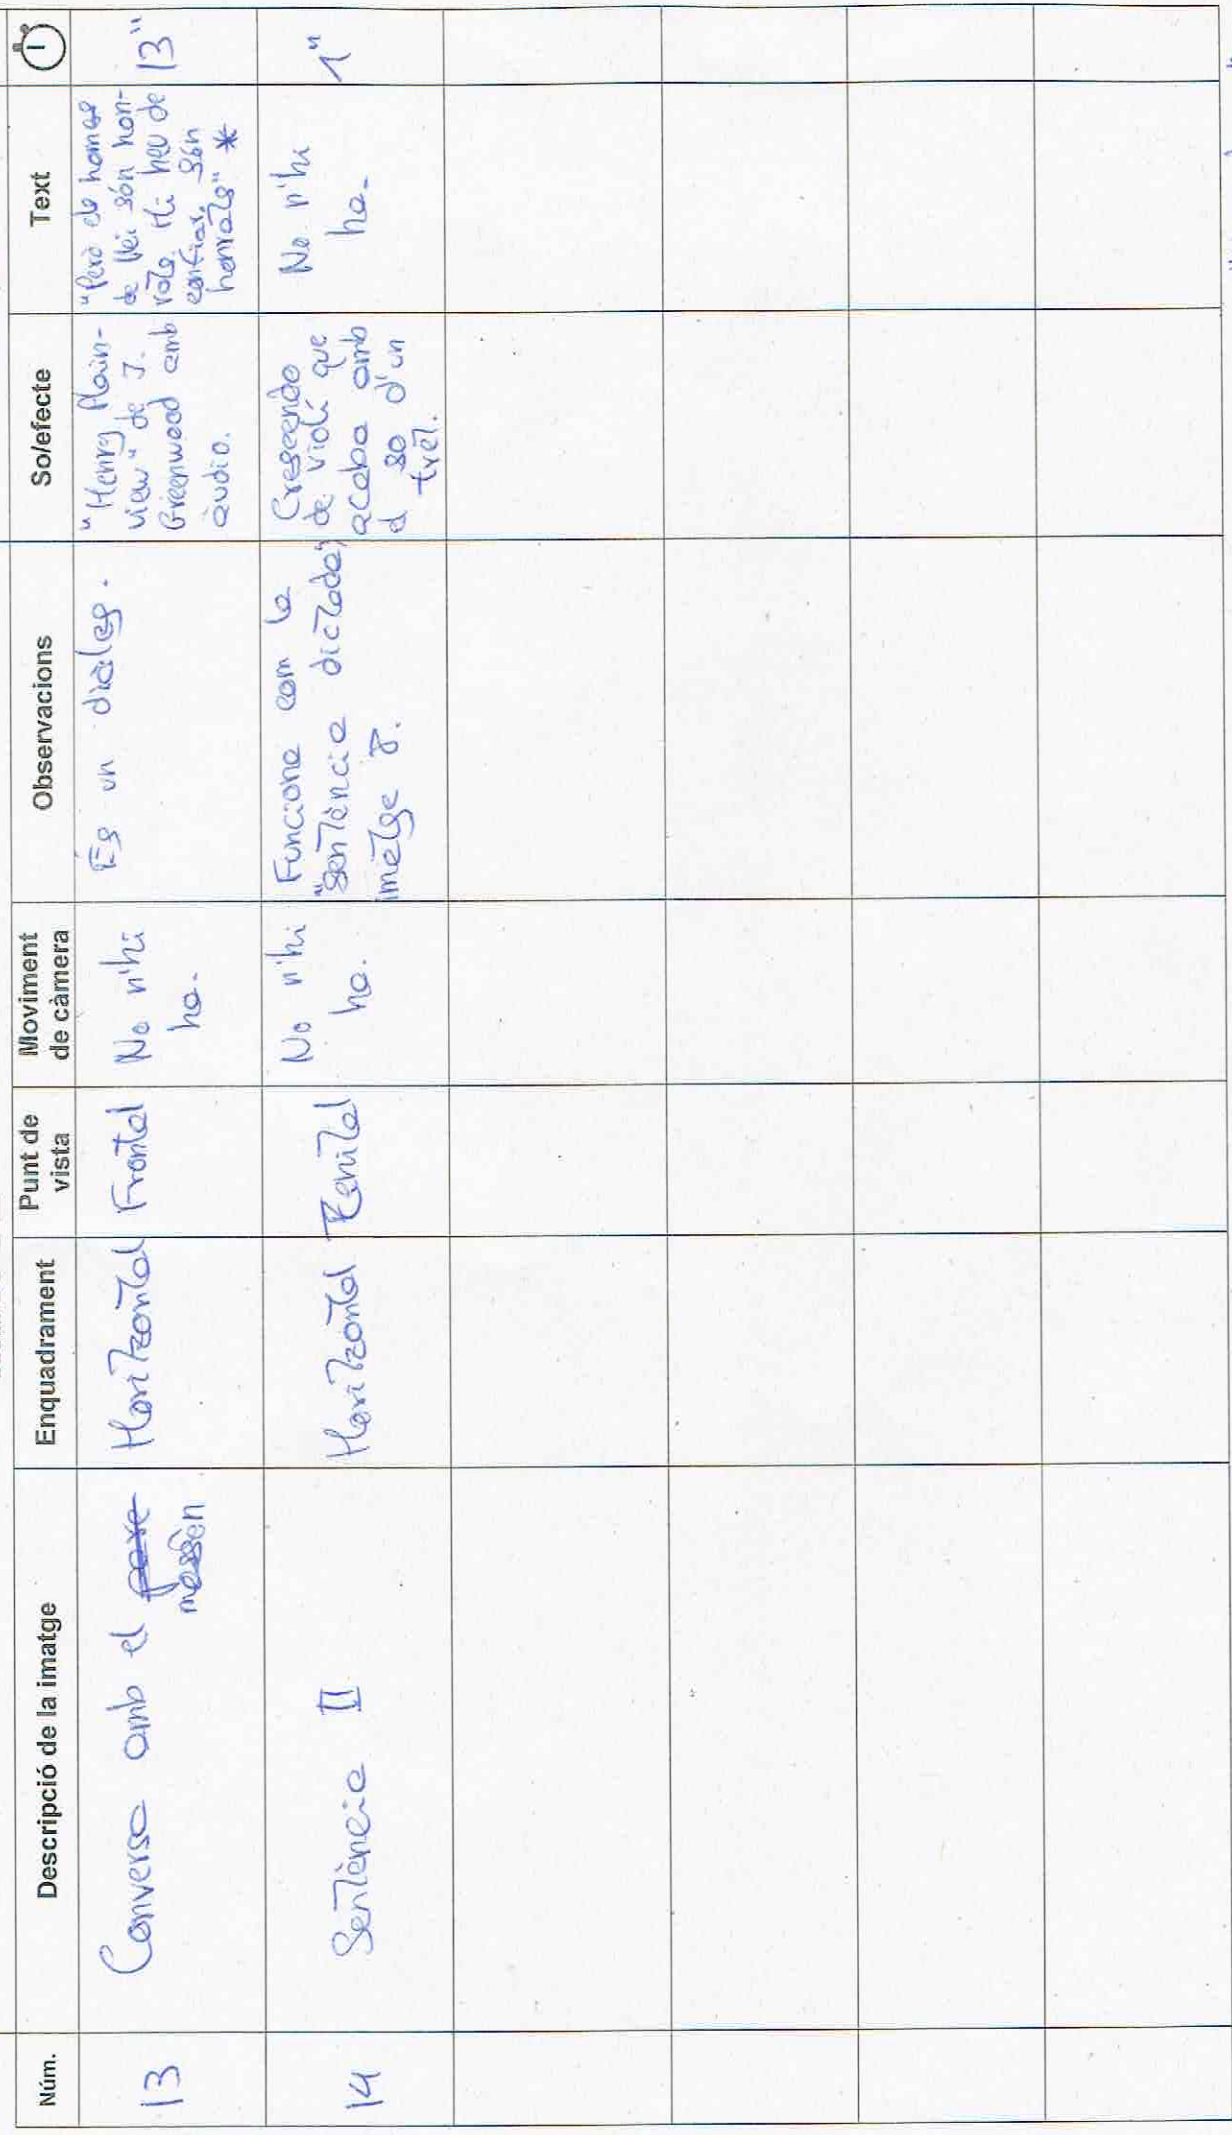 Núm.
Descripció de la imatge
Enquadrament
Punt de
vista
Moviment
de càmera
Observacions
So/efecte
Text
13
Conversa amb el pare
mossèn
Horitzontal
Frontal
No n'hi
ha.
És un diàleg.
"Henry Plain-
view" de J.
Greenwood amb
àudio.
"Però els homes
de llei són hon-
rats. Hi heu de
confiar. Són
honrats" *
13"
14
Sentència II
Horitzontal
Zenital
No n'hi
ha.
Funciona com la
"sentència dictada"
imatge 8.
Crescendo
de violí que
acaba amb
el so d'un
tret.
No n'hi
ha.
1"